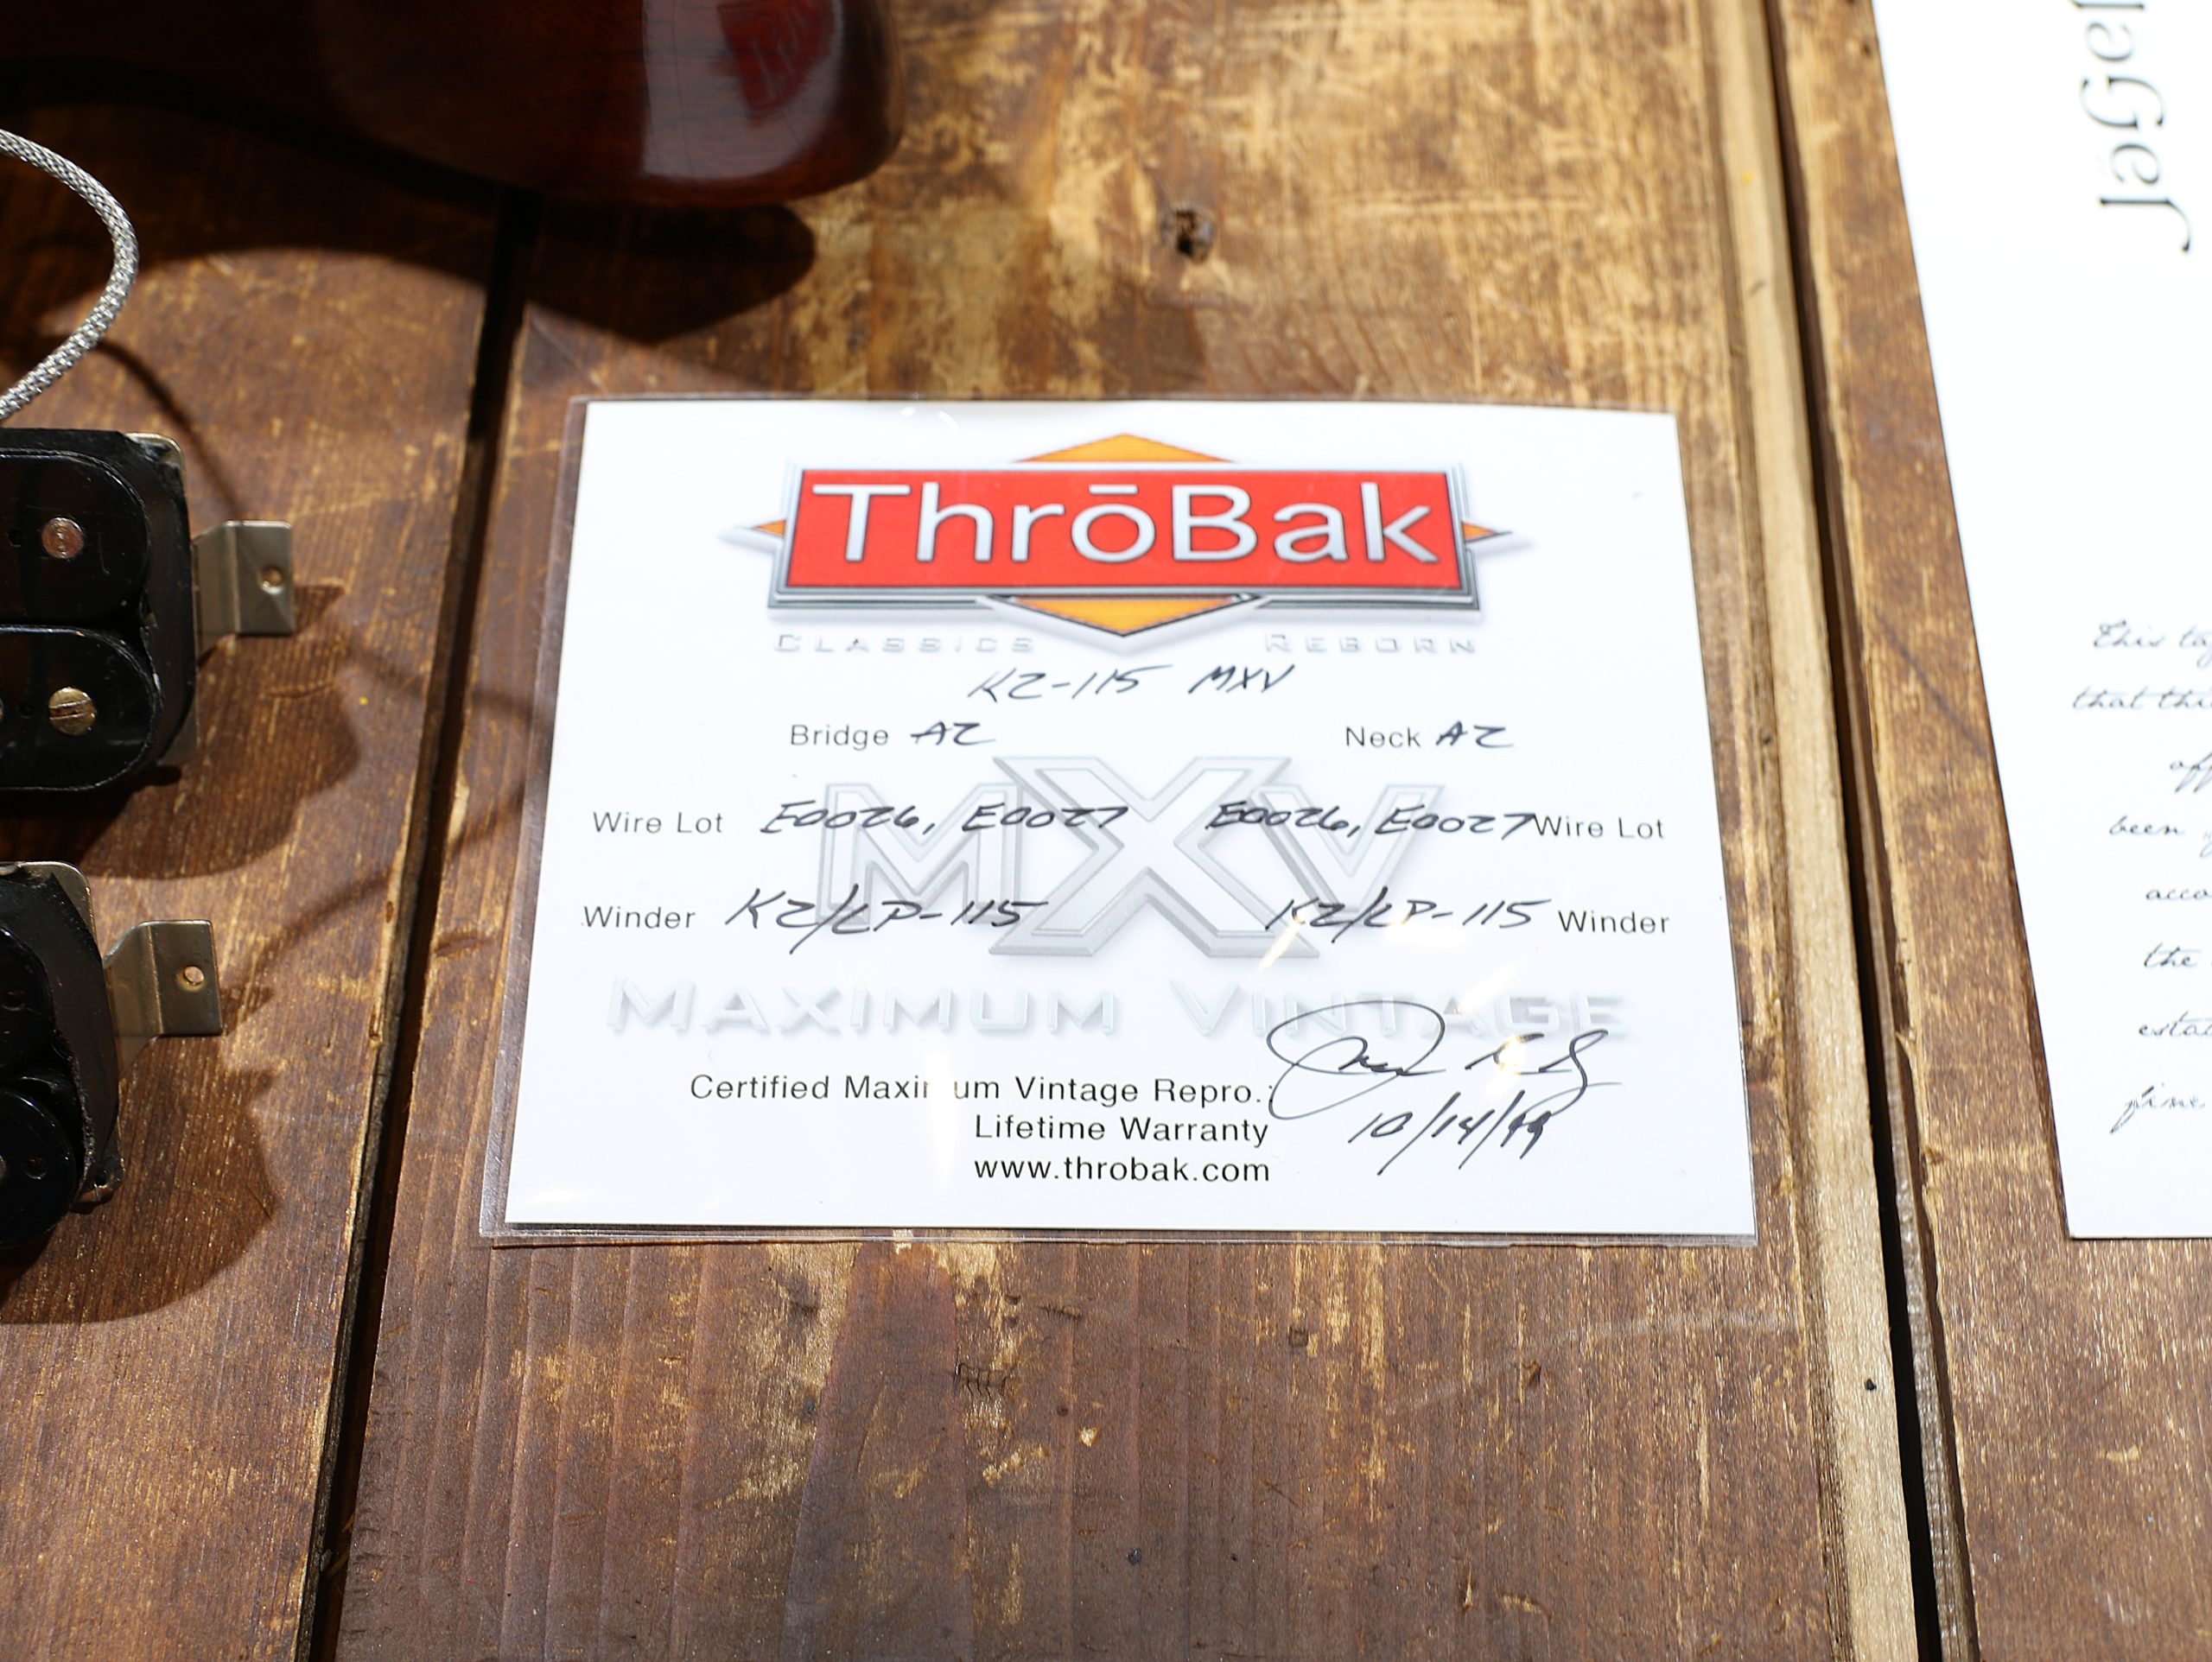 ThrōBak
CLASSICS REBORN
KZ-115 MXV
Bridge A2 Neck A2
MXV
Wire Lot E0026, E0027 E0026, E0027 Wire Lot
Winder KZ/LP-115 KZ/LP-115 Winder
MAXIMUM VINTAGE
Certified Maximum Vintage Repro.:
Lifetime Warranty
www.throbak.com
This
that
been
the